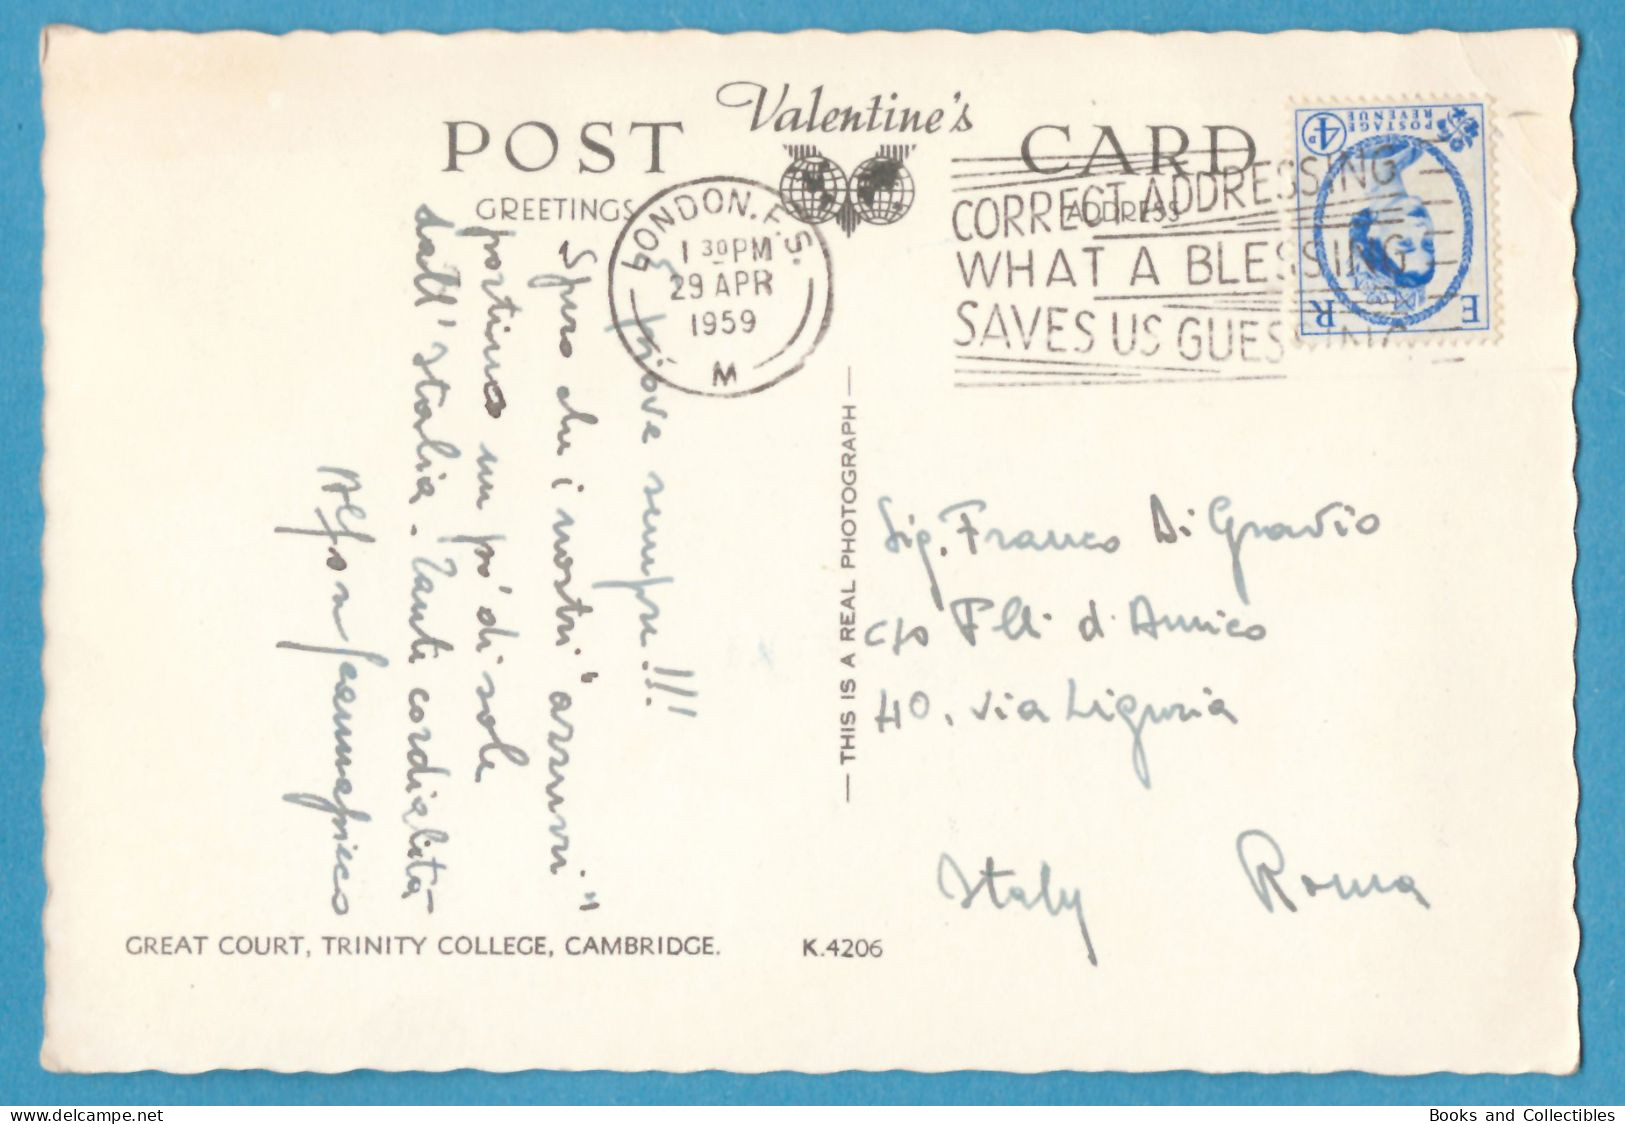 Valentine's
POST CARD
GREETINGS
ADDRESS
LONDON. F.S.
1 30 PM
29 APR
1959
M
CORRECT ADDRESSING
WHAT A BLESSING
SAVES US GUESSING
POSTAGE
REVENUE
4D
E R
piove sempre!!!
Spero che i nostri "azzurri"
portino un po' di sole
dall'Italia. Tanti cordialità
THIS IS A REAL PHOTOGRAPH
Sig. Franco Di Gravio
c/o F.lli d'Amico
40, via Liguria
Italy Roma
GREAT COURT, TRINITY COLLEGE, CAMBRIDGE. K.4206
Books and Collectibles
www.delcampe.net